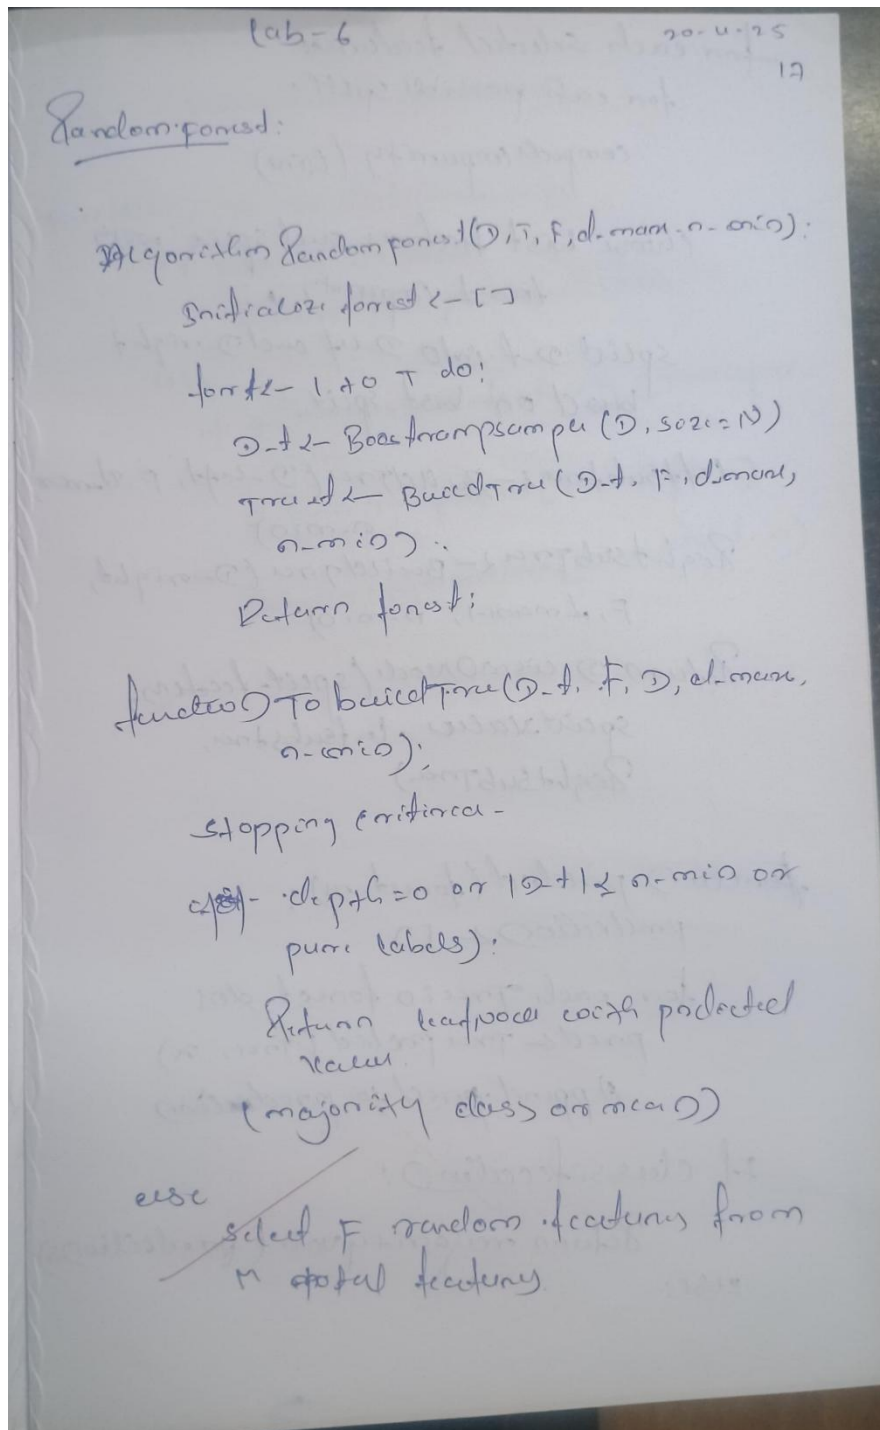 Lab-6
20-4-25
17
Random forest:
Algorithm Random forest (D, T, F, d-max, n-min):
Initialize forest <- []
for t <- 1 to T do:
D-t <- Boostrampsample (D, size = N)
Tree t <- Build Tree (D-t, F, d-max,
n-min)
Return forest;
function To build Tree (D-t, F, D, d-max,
n-min):
Stopping criteria -
depth = 0 or |Dt| < n-min or
pure labels):
Return leafnode with predicted
value
(majority class or mean)
else
Select F random features from
M total features